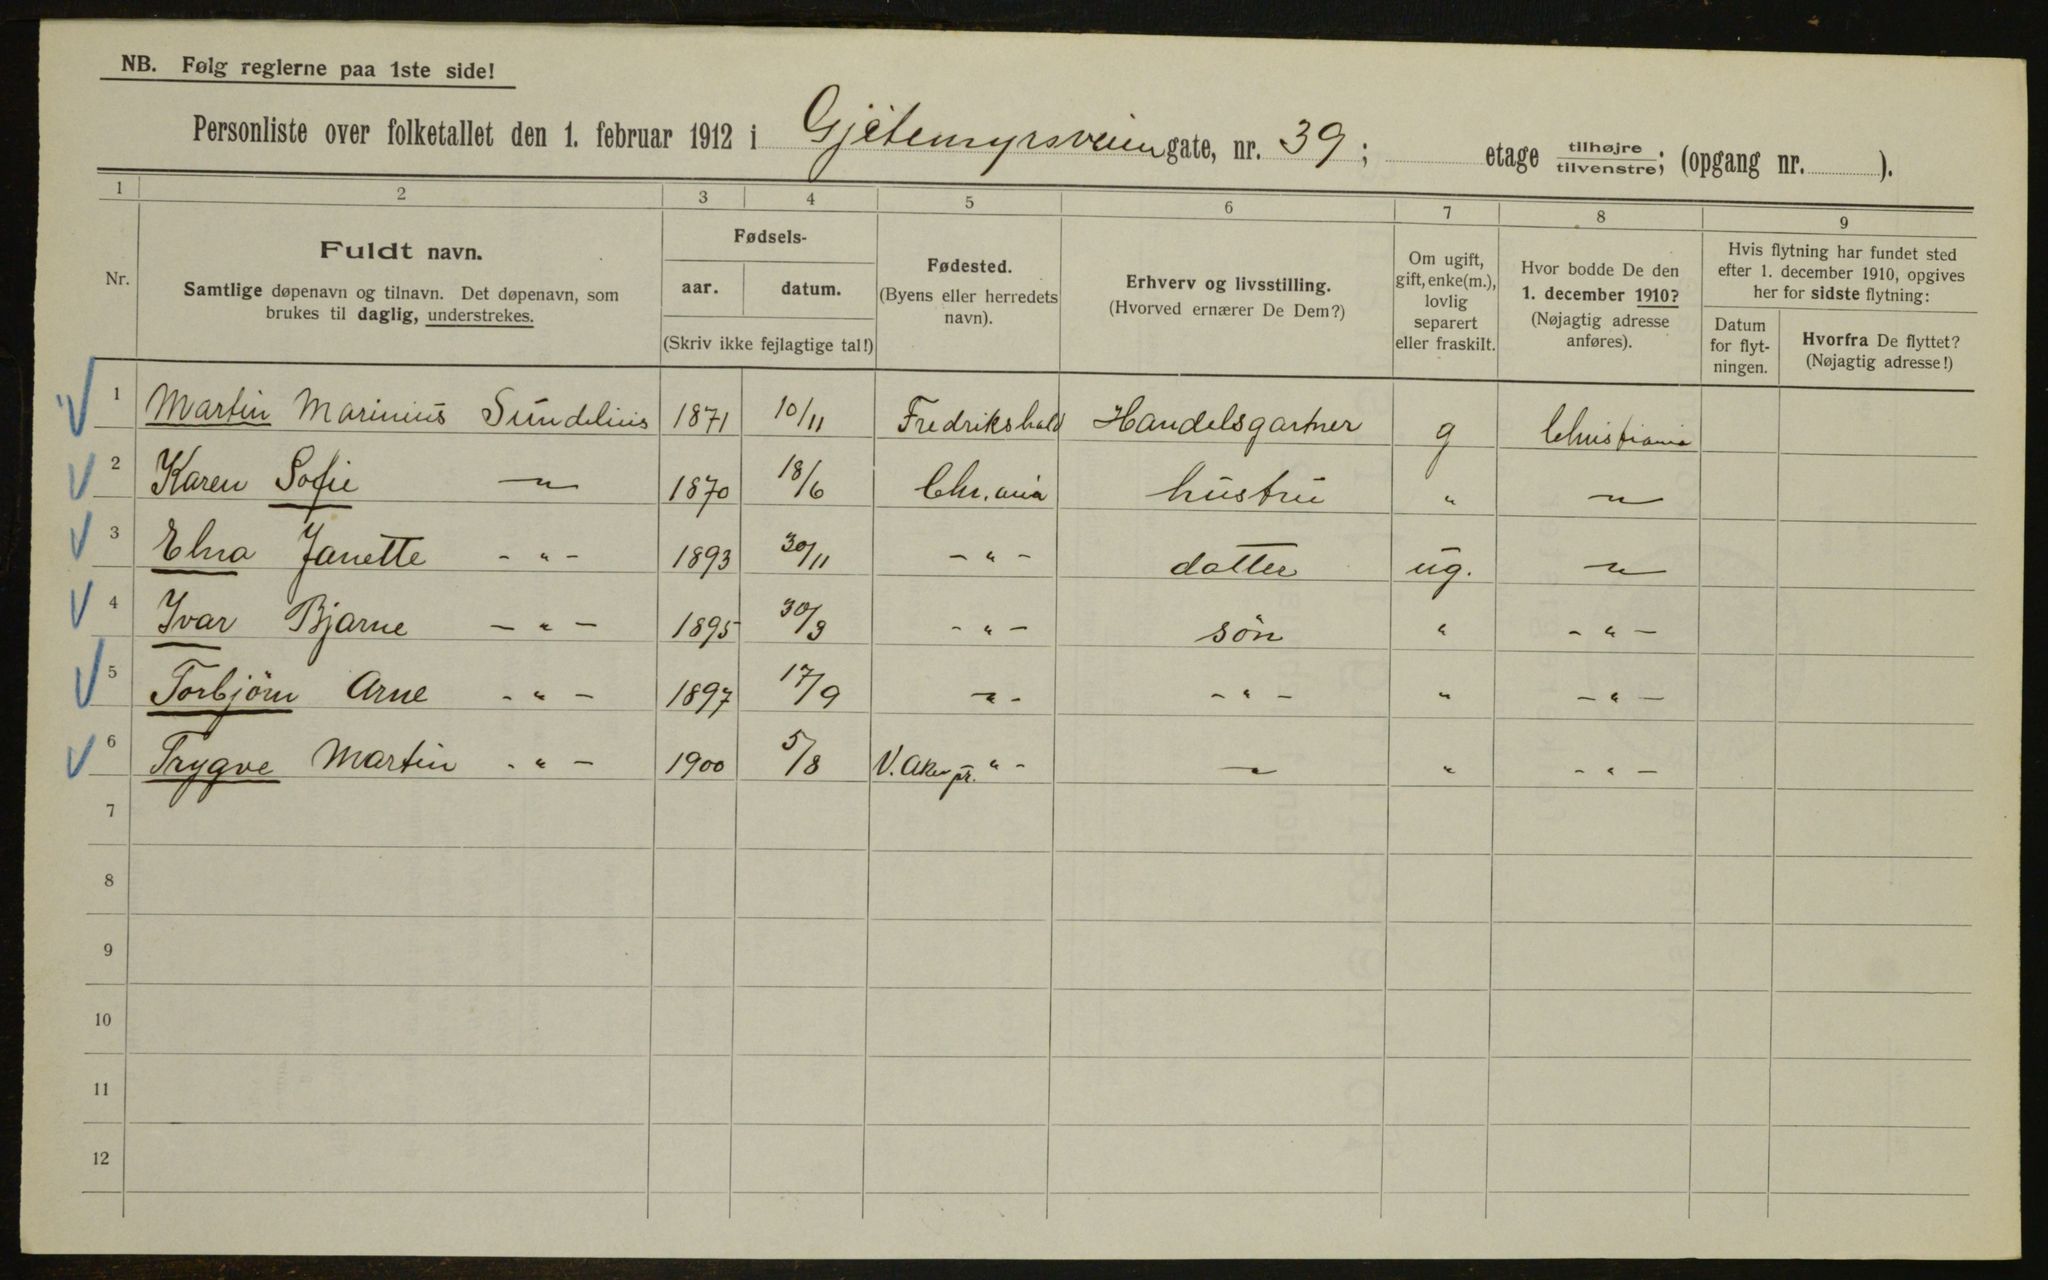 NB. Følg reglerne paa 1ste side!
Personliste over folketallet den 1. februar 1912 i Gjetemyrsveien gate, nr. 39; etage tilhøjre/tilvenstre; (opgang nr. ).
1 2 3 4 5 6 7 8 9
Nr.
Fuldt navn.
Samtlige døpenavn og tilnavn. Det døpenavn, som
brukes til daglig, understrekes.
Fødsels-
aar. datum.
(Skriv ikke fejlagtige tal!)
Fødested.
(Byens eller herredets
navn).
Erhverv og livsstilling.
(Hvorved ernærer De Dem?)
Om ugift,
gift, enke(m.),
lovlig
separert
eller fraskilt.
Hvor bodde De den
1. december 1910?
(Nøjagtig adresse
anføres).
Hvis flytning har fundet sted
efter 1. december 1910, opgives
her for sidste flytning:
Datum
for flyt-
ningen.
Hvorfra De flyttet?
(Nøjagtig adresse!)
1 Martin Marinius Sundelius 1871 10/11 Fredrikshald Handelsgartner g Christiania
2 Karen Sofie — " — 1870 18/6 Chr.ania hustru " — " —
3 Elna Janette - " - 1893 30/11 - " - datter ug. — " —
4 Ivar Bjarne - " - 1895 30/9 - " - sön " - " -
5 Torbjörn Arne - " - 1897 17/9 - " - - " - " - " -
6 Trygve Martin - " - 1900 5/8 V. Aker pr. - " - — " — " - " -
7
8
9
10
11
12